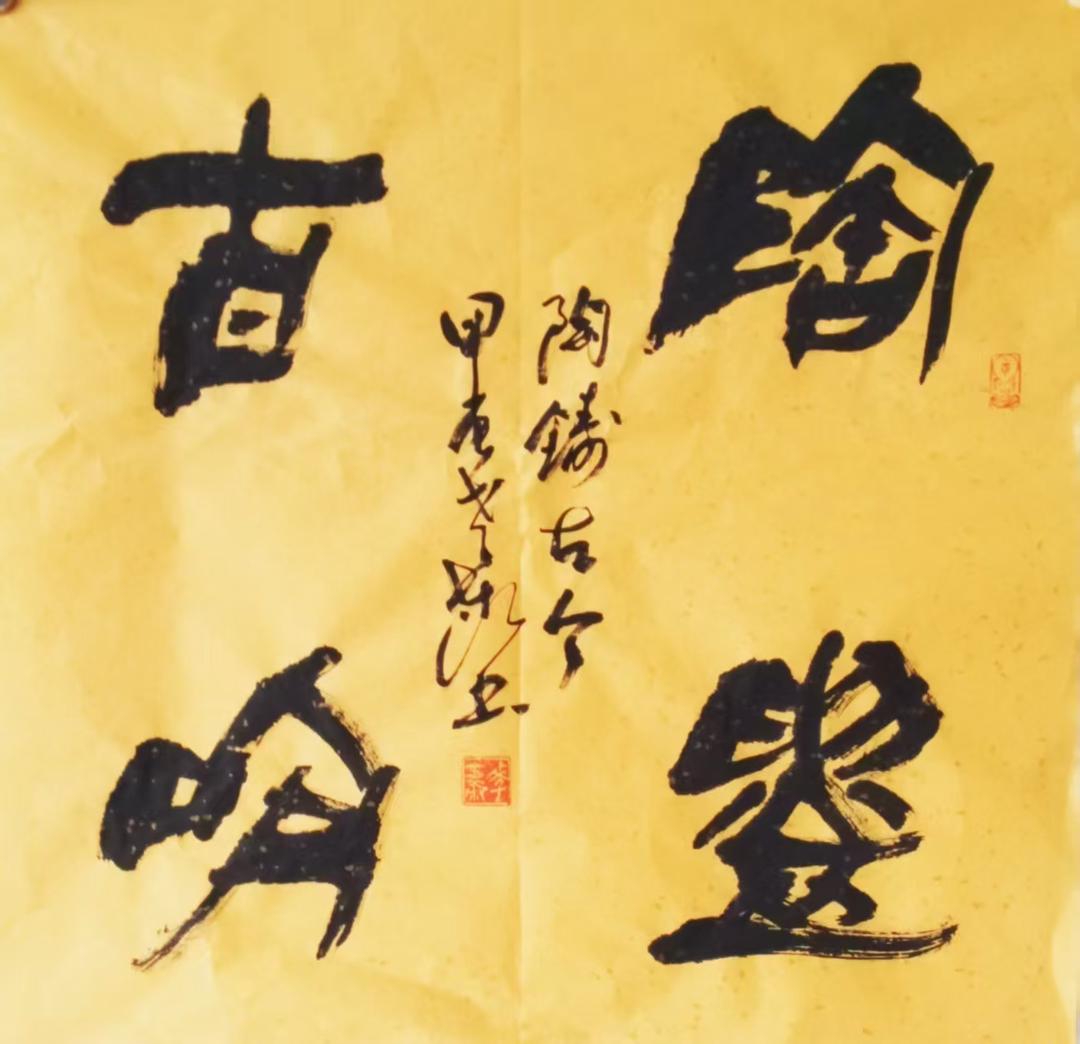 陶鑄
古今
陶鑄古今
甲辰书